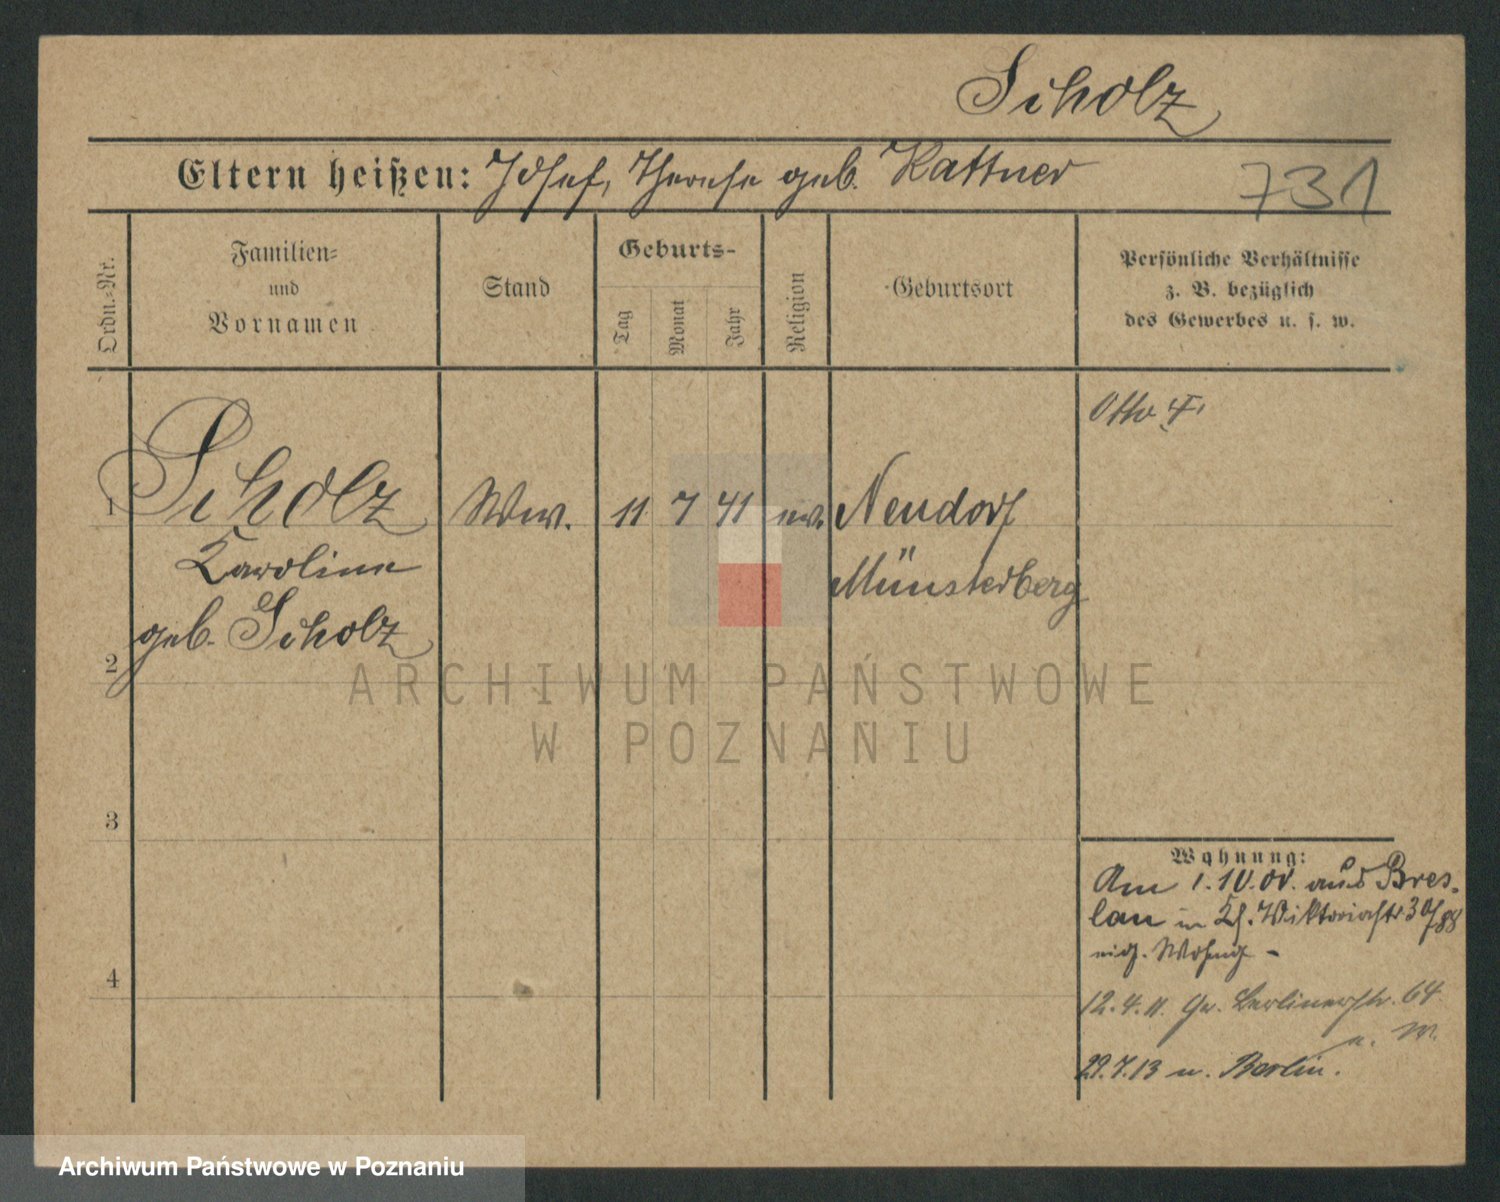 Scholz
Eltern heißen: Josef, Therese geb. Kattner
731
Ordn.-Nr.
Familien-
und
Vornamen
Stand
Geburts-
Tag
Monat
Jahr
Religion
Geburtsort
Persönliche Verhältnisse
z. B. bezüglich
des Gewerbes u. s. w.
Otto
1 Scholz Ww. 11 7 41 ev. Neudorf
Karoline Münsterberg
geb. Scholz
2
ARCHIWUM PAŃSTWOWE
W POZNANIU
3
Wohnung:
Am 1.10.00. aus Bres-
lau in Viktoriastr 30
eig. Wohng -
4
12.4.11. Gr. Berlinerstr. 64
29.7.13 n. Berlin.
Archiwum Państwowe w Poznaniu